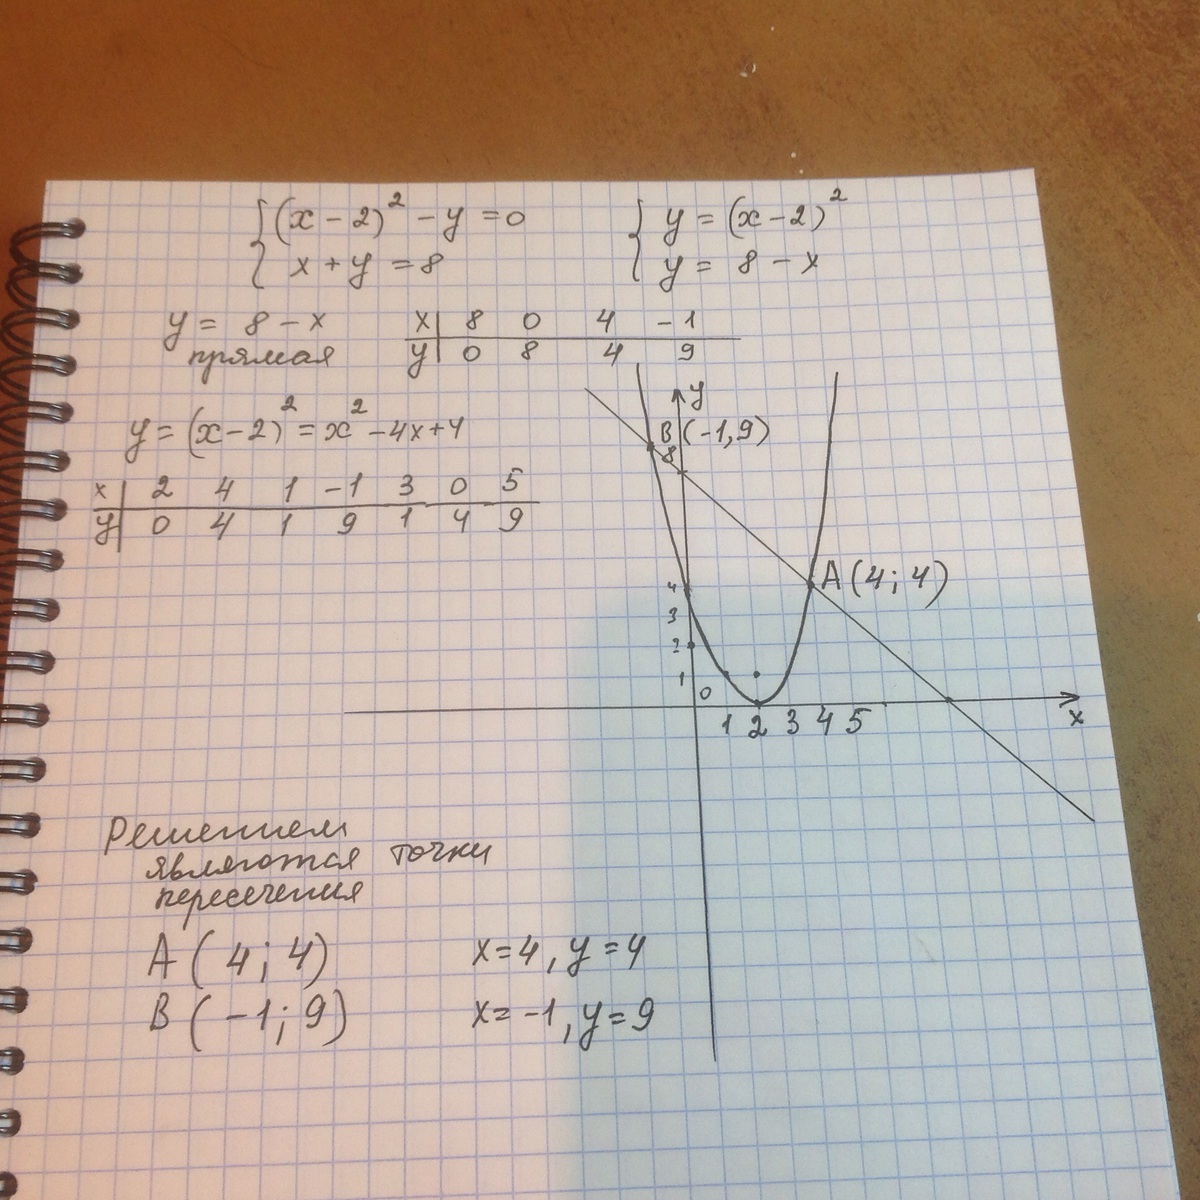 (x-2)² - y = 0
x + y = 8
y = (x-2)²
y = 8 - x
y = 8 - x
прямая
x | 8 0 4 -1
y | 0 8 4 9
y = (x-2)² = x² - 4x + 4
x | 2 4 1 -1 3 0 5
y | 0 4 1 9 1 4 9
y
B(-1,9)
8
A(4;4)
4
3
2
1
0
1 2 3 4 5
x
Решением
являются точки
пересечения
A(4;4) x=4, y=4
B(-1;9) x=-1, y=9